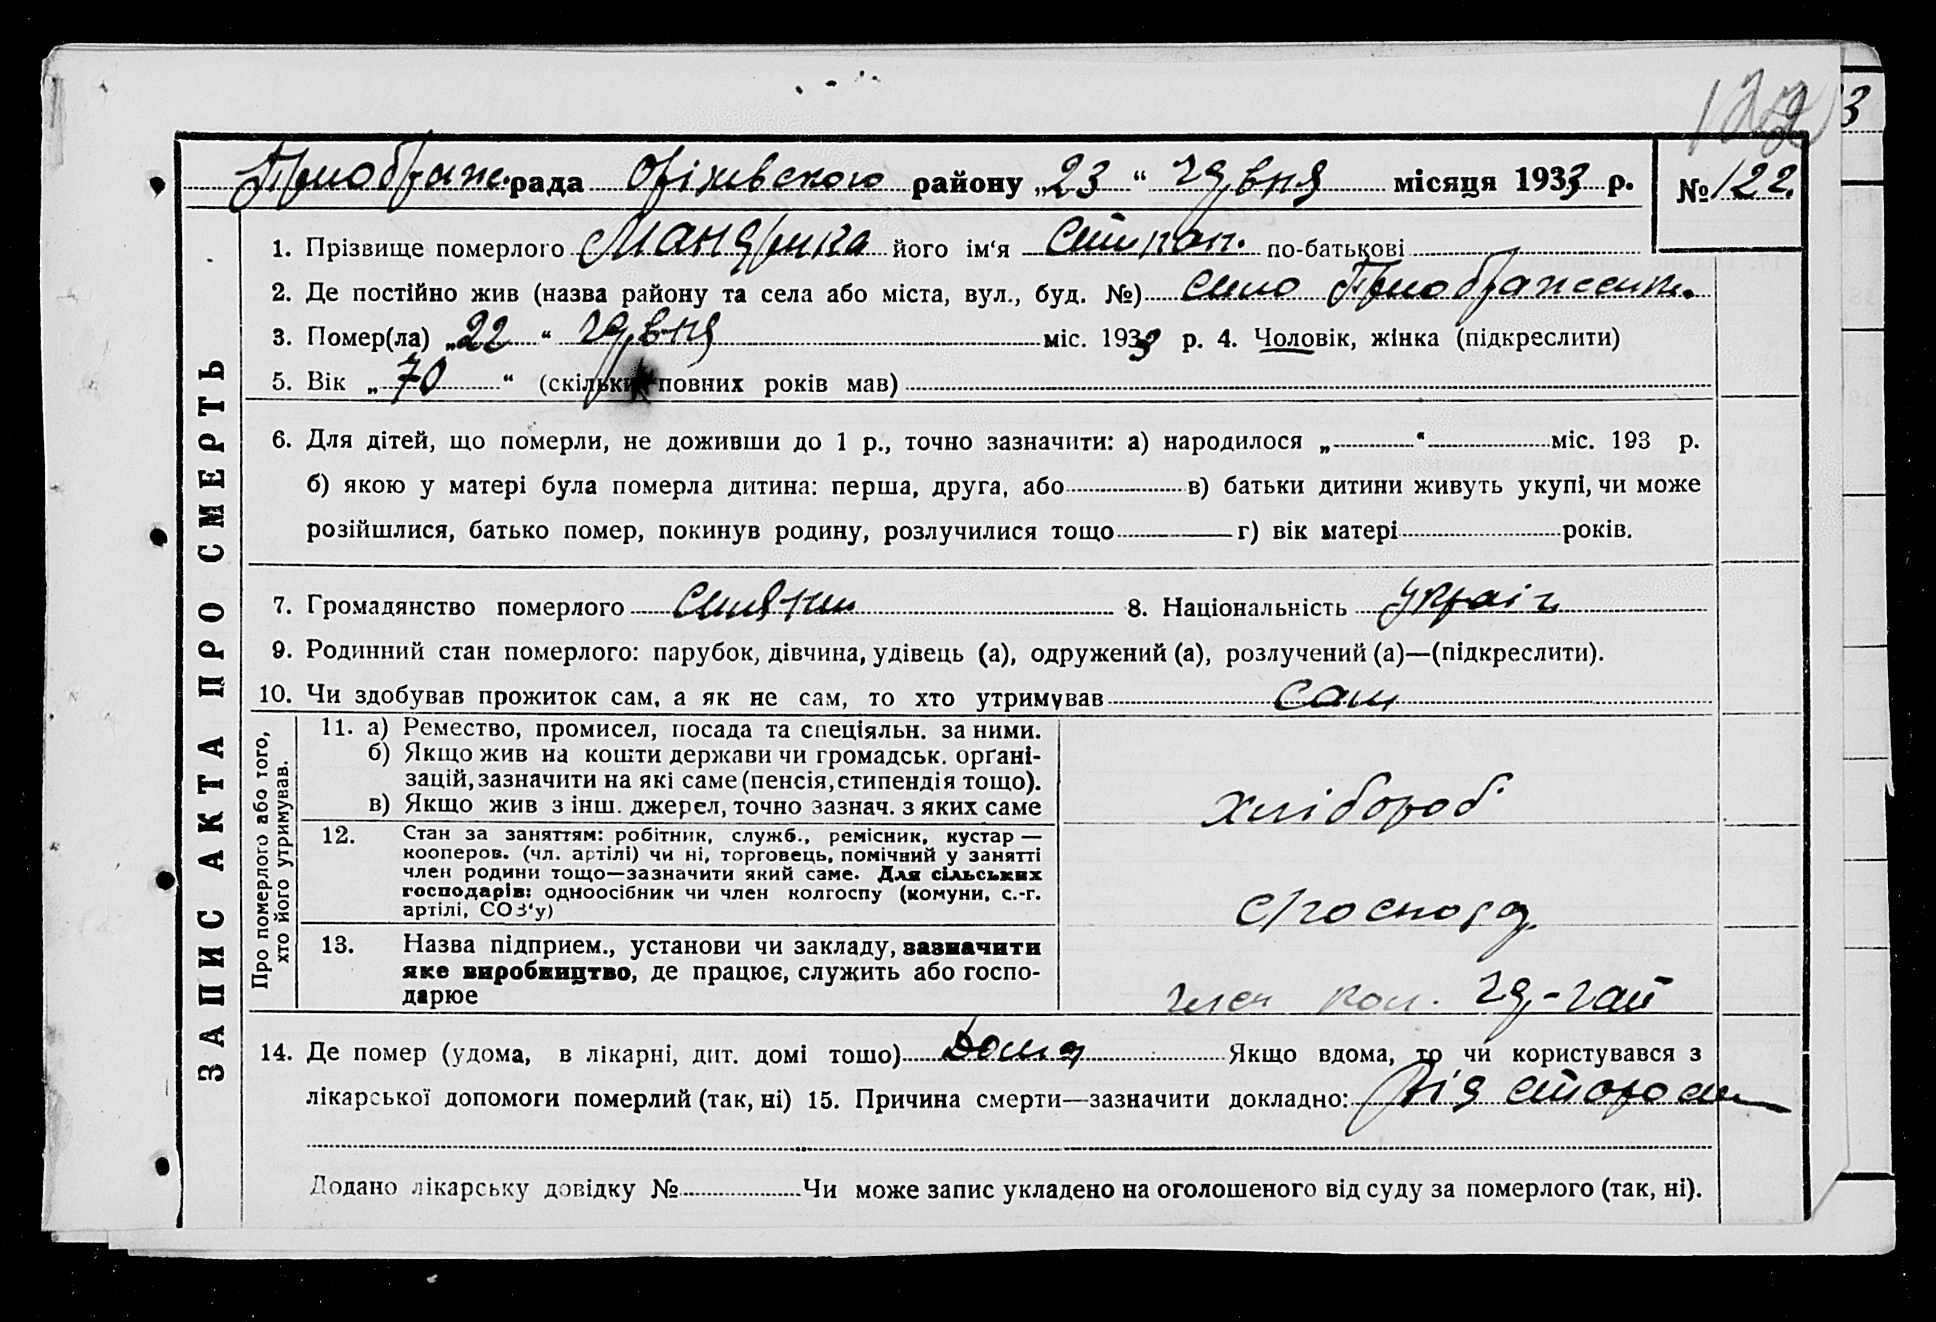 122
3
Приображен. рада Оріхівского району „23“ грудня місяця 1933 р. № 122.
1. Прізвище померлого Мандрика його ім‘я Степан. по-батькові
2. Де постійно жив (назва району та села або міста, вул., буд. №) село Приображенк.
3. Помер(ла) „22“ грудня міс. 1933 р. 4. Чоловік, жінка (підкреслити)
5. Вік „70“ (скільки повних років мав)
6. Для дітей, що померли, не доживши до 1 р., точно зазначити: а) народилося „ “ міс. 193 р.
б) якою у матері була померла дитина: перша, друга, або в) батьки дитини живуть укупі, чи може
розійшлися, батько помер, покинув родину, розлучилися тощо г) вік матері років.
7. Громадянство померлого селянин 8. Національність україн
9. Родинний стан померлого: парубок, дівчина, удівець (а), одружений (а), розлучений (а)—(підкреслити).
10. Чи здобував прожиток сам, а як не сам, то хто утримував сам
ЗАПИС АКТА ПРО СМЕРТЬ
Про померлого або того, хто його утримував.
11. а) Ремество, промисел, посада та спеціяльн. за ними.
б) Якщо жив на кошти держави чи громадськ. орґані-
зацій, зазначити на які саме (пенсія, стипендія тощо).
в) Якщо жив з інш. джерел, точно зазнач. з яких саме
хлібороб
12. Стан за заняттям: робітник, служб., ремісник, кустар —
кооперов. (чл. артілі) чи ні, торговець, помічний у занятті
член родини тощо—зазначити який саме. Для сільських
господарів: одноосібник чи член колгоспу (комуни, с.-г.
артілі, СОЗ‘у)
13. Назва підприєм., установи чи закладу, зазначити
яке виробництво, де працює, служить або госпо-
дарює
член кол.
14. Де помер (удома, в лікарні, дит. домі тощо) дома Якщо вдома, то чи користувався з
лікарської допомоги померлий (так, ні) 15. Причина смерти—зазначити докладно: від старости
Додано лікарську довідку № Чи може запис укладено на оголошеного від суду за померлого (так, ні).